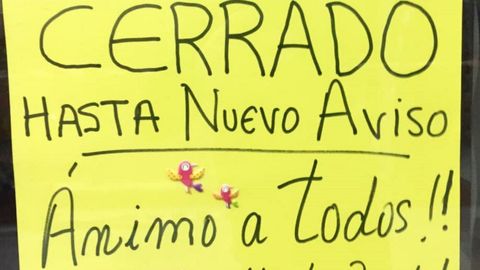 CERRADO
HASTA NUEVO AVISO
Ánimo a todos!!